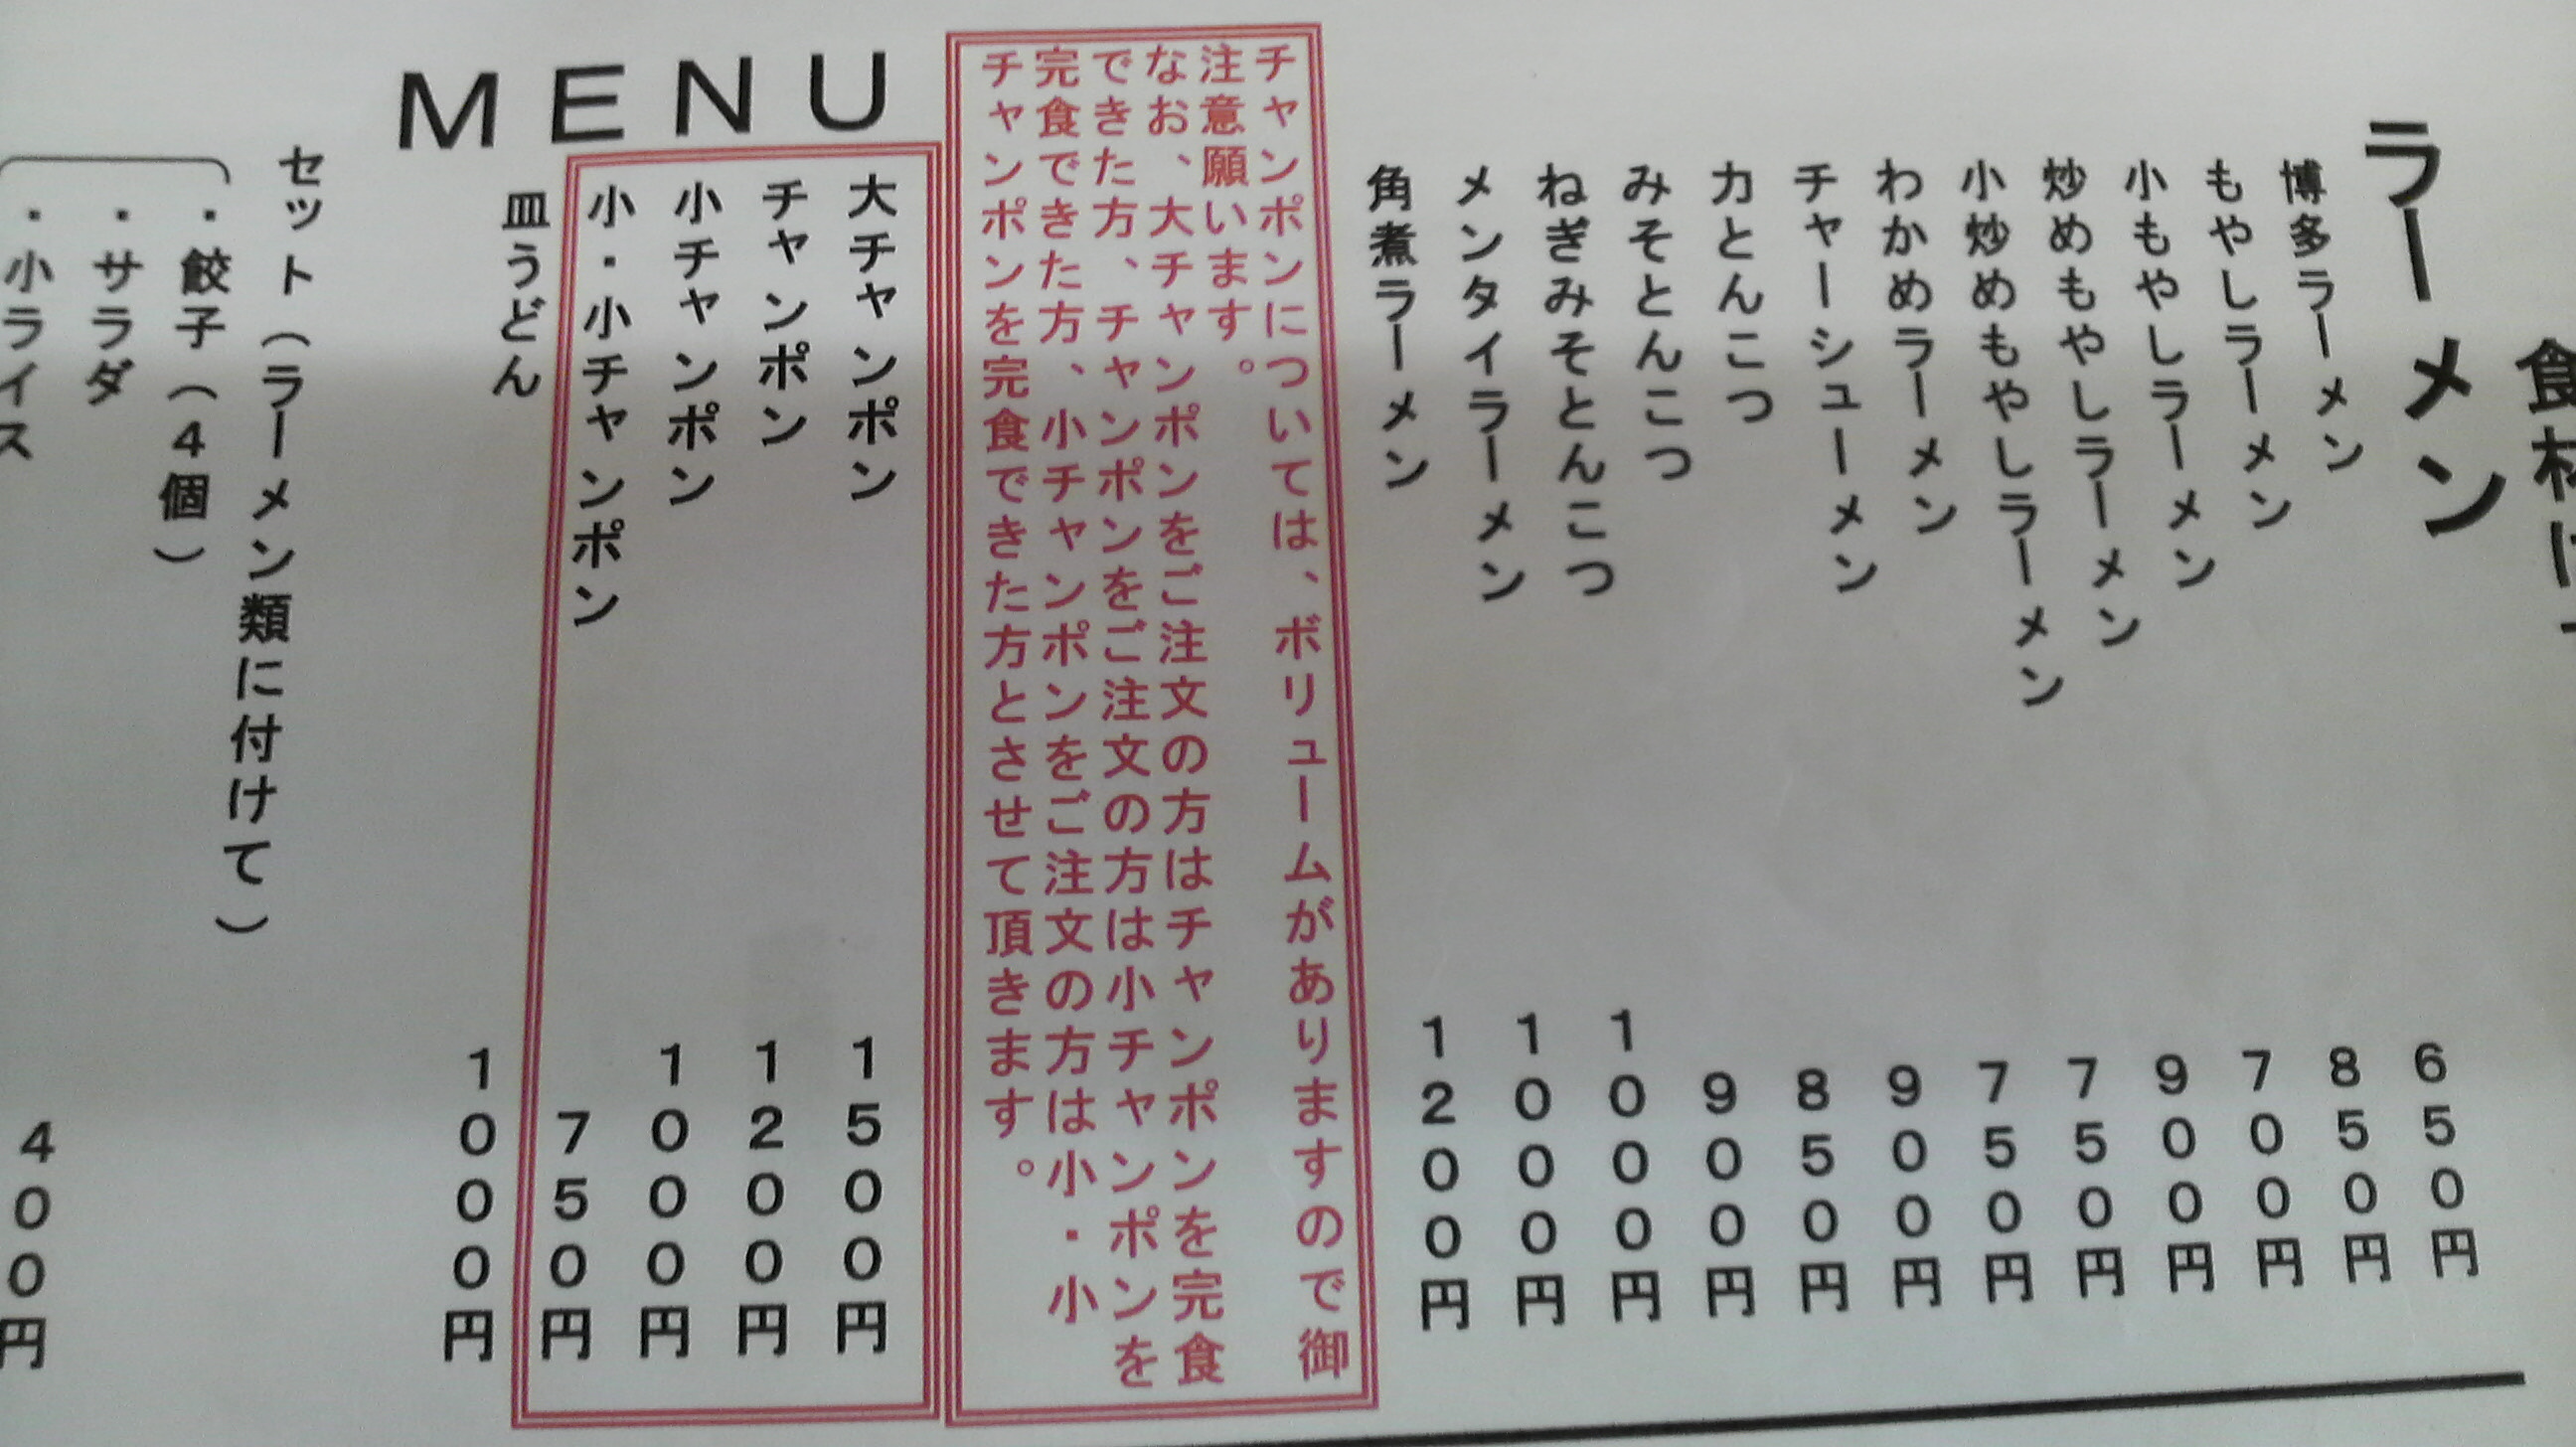 食材は
ラーメン
博多ラーメン 650円
もやしラーメン 850円
小もやしラーメン 700円
炒めもやしラーメン 900円
小炒めもやしラーメン 750円
わかめラーメン 750円
チャーシューメン 900円
力とんこつ 850円
みそとんこつ 900円
ねぎみそとんこつ 1000円
メンタイラーメン 1000円
角煮ラーメン 1200円
チャンポンについては、ボリュームがありますので御
注意願います。
なお、大チャンポンをご注文の方はチャンポンを完食
できた方、チャンポンをご注文の方は小チャンポンを
完食できた方、小チャンポンをご注文の方は小・小
チャンポンを完食できた方とさせて頂きます。
MENU
大チャンポン 1500円
チャンポン 1200円
小チャンポン 1000円
小・小チャンポン 750円
皿うどん 1000円
セット（ラーメン類に付けて）
・餃子（4個）
・サラダ
・小ライス 400円